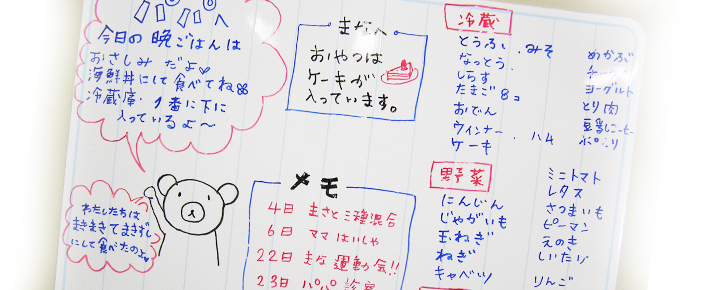 パパへ
今日の晩ごはんは
おさしみだよ
海鮮丼にして食べてね
冷蔵庫1番に下に
入っているよ～
まなへ
おやつは
ケーキが
入っています。
冷蔵
とうふ、みそ
なっとう
しらす
たまご8コ
おでん
ウィンナー、ハム
ケーキ
めかぶ
チーズ
ヨーグルト
とり肉
豆乳コーヒー
野菜
にんじん
じゃがいも
玉ねぎ
ねぎ
キャベツ
ミニトマト
レタス
さつまいも
ピーマン
えのき
りんご
わたしたちは
まきまきてまきずし
にして食べたのよ
メモ
4日 まさと三種混合
6日 ママはいしゃ
22日 まな運動会!!
23日 パパ診察